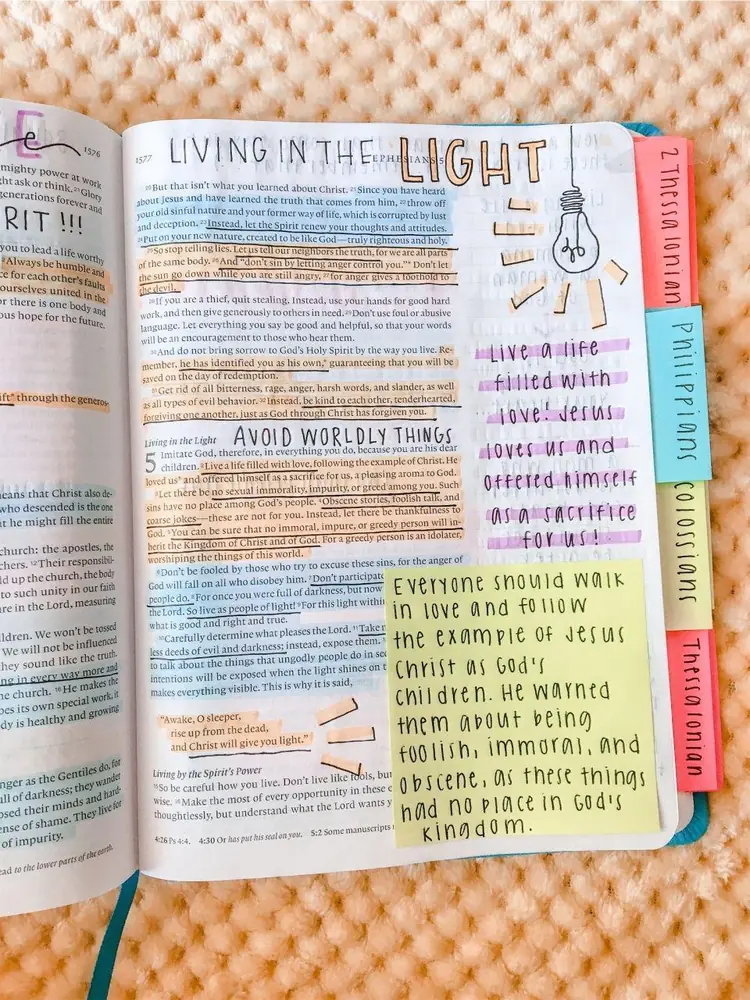 E
e
1576
mighty power at work
ght ask or think. 21Glory
generations forever and
RIT !!!
you to lead a life worthy
2Always be humble and
ce for each other's faults
ourselves united in the
or there is one body and
ous hope for the future.
ift" through the generos-
eans that Christ also de-
who descended is the one
at he might fill the entire
church: the apostles, the
chers. 12Their responsibil-
ld up the church, the body
to such unity in our faith
re in the Lord, measuring
ldren. We won't be tossed
We will not be influenced
they sound like the truth.
ing in every way more and
he church. 16He makes the
oes its own special work, it
dy is healthy and growing
nger as the Gentiles do, for
ull of darkness; they wander
osed their minds and hard-
ense of shame. They live for
of impurity.
ead to the lower parts of the earth.
1577
LIVING IN THE LIGHT
EPHESIANS 5
20But that isn't what you learned about Christ. 21Since you have heard
about Jesus and have learned the truth that comes from him, 22throw off
your old sinful nature and your former way of life, which is corrupted by lust
and deception. 23Instead, let the Spirit renew your thoughts and attitudes.
24Put on your new nature, created to be like God—truly righteous and holy.
25So stop telling lies. Let us tell our neighbors the truth, for we are all parts
of the same body. 26And "don't sin by letting anger control you."* Don't let
the sun go down while you are still angry, 27for anger gives a foothold to
the devil.
28If you are a thief, quit stealing. Instead, use your hands for good hard
work, and then give generously to others in need. 29Don't use foul or abusive
language. Let everything you say be good and helpful, so that your words
will be an encouragement to those who hear them.
30And do not bring sorrow to God's Holy Spirit by the way you live. Re-
member, he has identified you as his own,* guaranteeing that you will be
saved on the day of redemption.
31Get rid of all bitterness, rage, anger, harsh words, and slander, as well
as all types of evil behavior. 32Instead, be kind to each other, tenderhearted,
forgiving one another, just as God through Christ has forgiven you.
Living in the Light AVOID WORLDLY THINGS
5 Imitate God, therefore, in everything you do, because you are his dear
children. 2Live a life filled with love, following the example of Christ. He
loved us* and offered himself as a sacrifice for us, a pleasing aroma to God.
3Let there be no sexual immorality, impurity, or greed among you. Such
sins have no place among God's people. 4Obscene stories, foolish talk, and
coarse jokes—these are not for you. Instead, let there be thankfulness to
God. 5You can be sure that no immoral, impure, or greedy person will in-
herit the Kingdom of Christ and of God. For a greedy person is an idolater,
worshiping the things of this world.
6Don't be fooled by those who try to excuse these sins, for the anger of
God will fall on all who disobey him. 7Don't participate
people do. 8For once you were full of darkness, but now
the Lord. So live as people of light! 9For this light within
what is good and right and true.
10Carefully determine what pleases the Lord. 11Take
less deeds of evil and darkness; instead, expose them.
to talk about the things that ungodly people do in sec
intentions will be exposed when the light shines on t
makes everything visible. This is why it is said,
"Awake, O sleeper,
rise up from the dead,
and Christ will give you light."
Living by the Spirit's Power
15So be careful how you live. Don't live like fools, bu
wise. 16Make the most of every opportunity in these e
thoughtlessly, but understand what the Lord wants y
4:26 Ps 4:4. 4:30 Or has put his seal on you. 5:2 Some manuscripts
Live a life
filled with
love! Jesus
loves us and
offered himself
as a sacrifice
for us!
Everyone should walk
in love and follow
the example of Jesus
Christ as God's
children. He warned
them about being
foolish, immoral, and
obscene, as these things
had no place in God's
kingdom.
2 Thessalonian
Philippians
colossians
Thessalonian